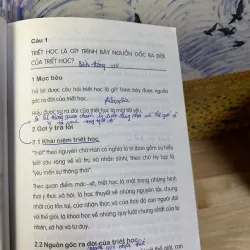 Câu 1
TRIẾT HỌC LÀ GÌ? TRÌNH BÀY NGUỒN GỐC RA ĐỜI
CỦA TRIẾT HỌC?
1 Mục tiêu
Trả lời được câu hỏi triết học là gì? Trình bày được nguồn
gốc ra đời của triết học.
Hiểu được sự ra đời của triết học là một tất yếu.
2 Gợi ý trả lời
2.1 Khái niệm triết học
"Triết" theo nguyên chữ Hán có nghĩa là trí bao gồm sự hiểu
biết sâu rộng về vũ trụ và nhân sinh; theo chữ Hy Lạp là
"yêu mến sự thông thái".
Theo quan điểm mác-xít, triết học là một trong những hình
thái ý thức xã hội, là học thuyết về những nguyên tắc chung
nhất của tồn tại, của nhận thức và thái độ của con người đối
với thế giới, là khoa học về những quy luật chung nhất của tự
nhiên, xã hội và tư duy.
2.2 Nguồn gốc ra đời của triết học